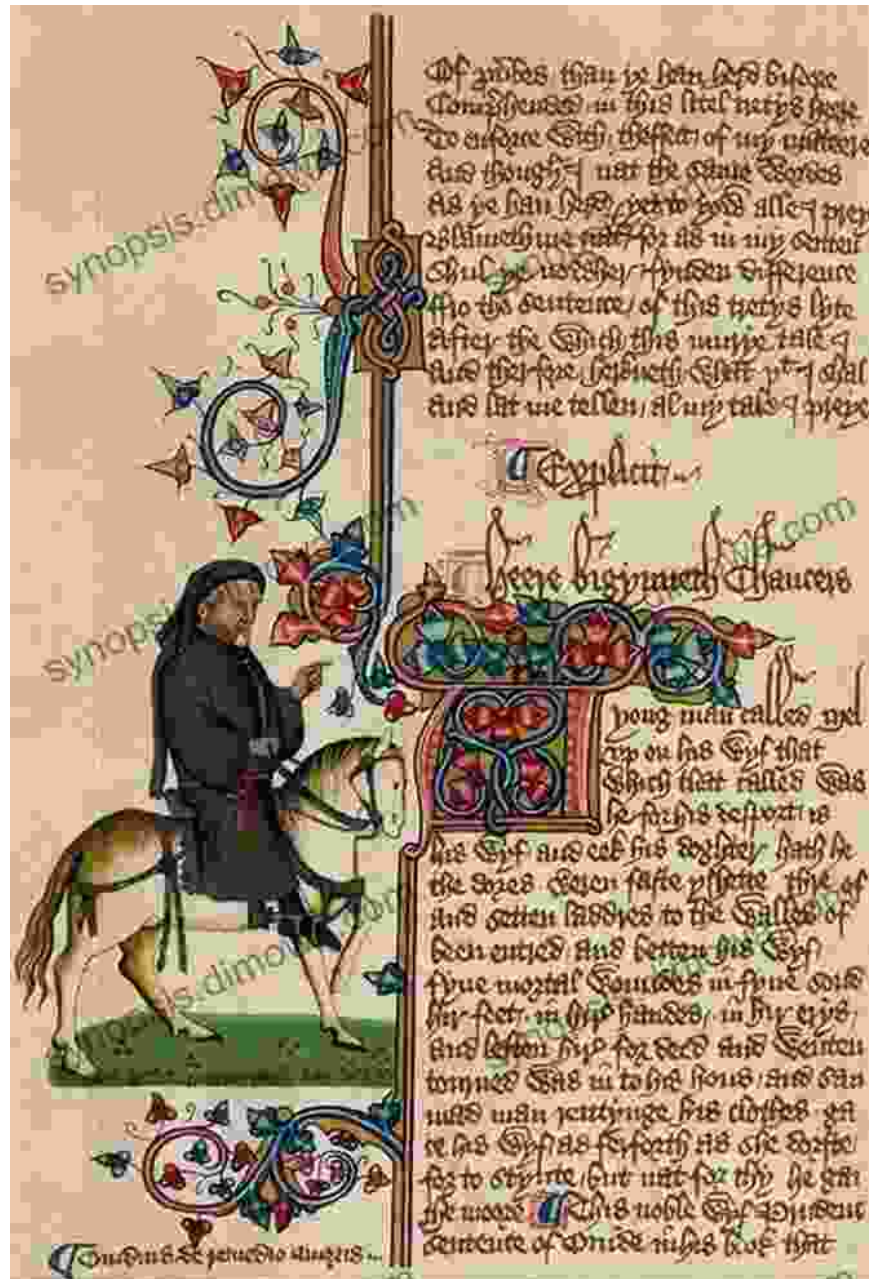 Of prouerbes than ye han herd bifore
Comprehended in this litel tretys heere
To enforce with theffect of my matere
And though I nat the same wordes
As ye han herd yet to yow alle I preye
Blameth me nat for as in my senten
Shul ye nowher fynden difference
ffro the sentence of this tretys lyte
After the which this murye tale I
And therfore herkneth what yt I shal
And lat me tellen al my tale I preye
Explicit
Heere bigynneth Chaucers
yong man called Mel
vp on his wyf that
which that called was
he for his desport is
his wyf and eek his doghter hath he
the dores weren faste yshette thre of
and setten laddres to the walles of
been entred and betten his wyf
fyue mortal woundes in fyue sond
hir feet in hir handes in hir erys
and leften hir for deed and wenten
torned was in to his hous and sau
mad man rentynge his clothes ga
te his wyf as ferforth as she dorste
for to stynte but nat for thy he gan
the moore This noble wyf Prudent
sentence of Ouide in his book that
Ouidius de remedio amoris
synopsis.dimowp.com
synopsis.dimowp.com
synopsis.dimowp.com